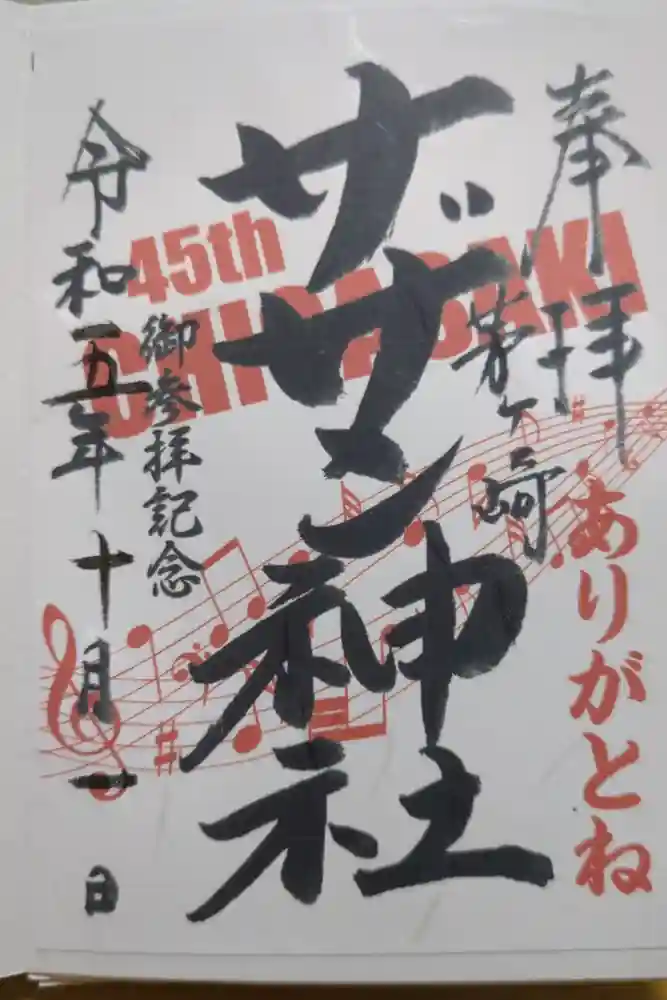 奉拝
茅ヶ崎
ありがとね
ザザン神社
45th
CHIGASAKI
御参拝記念
令和五年十月一日